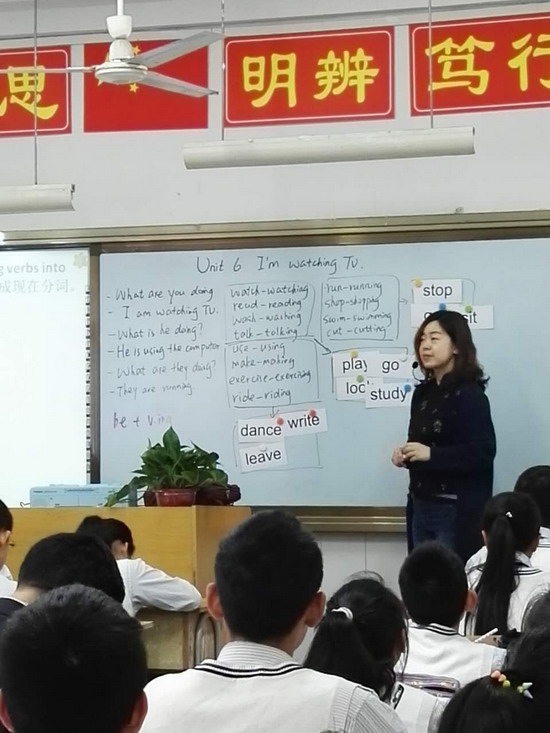 思
明辨
笃行
g verbs into
成现在分词。
Unit 6 I'm watching TV.
- What are you doing
- I am watching TV.
- What is he doing?
- He is using the computer
- What are they doing?
- They are running
be + v.ing
watch-watching
read-reading
wash-washing
talk-talking
use-using
make-making
exercise-exercising
ride-riding
run-running
shop-shopping
swim-swimming
cut-cutting
stop
sit
play
go
study
dance
write
leave